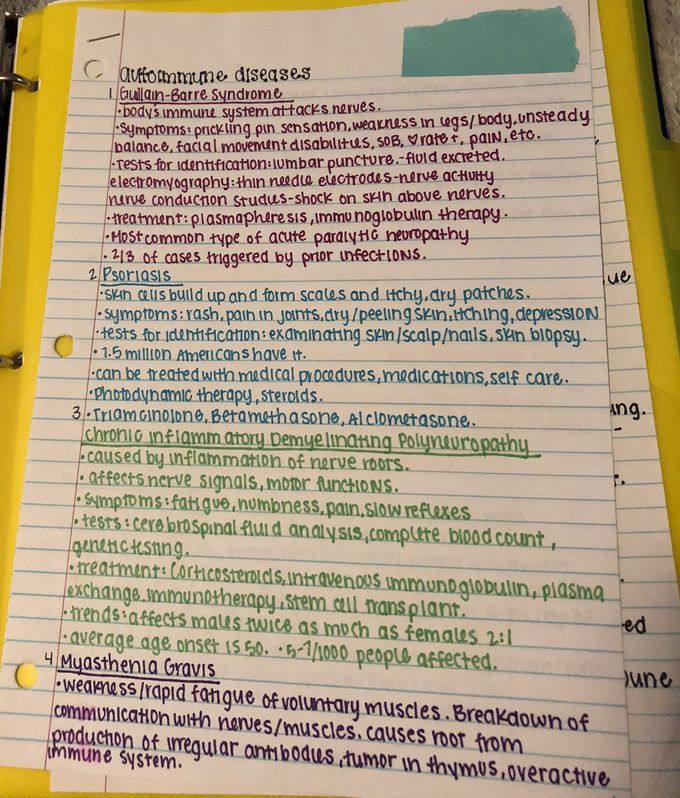 autoimmune diseases
1 Gullain-Barre Syndrome
•body's immune system attacks nerves.
•symptoms: prickling pin sensation, weakness in legs/body, unsteady
balance, facial movement disabilities, SOB, ♡rate↑, pain, etc.
•Tests for identification: lumbar puncture.-fluid excreted.
electromyography: thin needle electrodes-nerve activity
nerve conduction studies-shock on skin above nerves.
•treatment: plasmapheresis, immunoglobulin therapy.
•Most common type of acute paralytic neuropathy
•2/3 of cases triggered by prior infections.
2 Psoriasis
•skin cells build up and form scales and itchy, dry patches.
•symptoms: rash, pain in joints, dry/peeling skin, itching, depression
•tests for identification: examinating skin/scalp/nails, skin biopsy.
•7.5 million Americans have it.
•can be treated with medical procedures, medications, self care.
•Photodynamic therapy, steroids.
3 •Triamcinolone, Betamethasone, Alclometasone.
Chronic inflammatory Demyelinating Polyneuropathy
•caused by inflammation of nerve roots.
•affects nerve signals, motor functions.
•symptoms: fatigue, numbness, pain, slow reflexes
•tests: cerebrospinal fluid analysis, complete blood count,
genetic testing.
•treatment: Corticosteroids, intravenous immunoglobulin, plasma
exchange, immunotherapy, stem cell transplant.
•trends: affects males twice as much as females 2:1
•average age onset is 50. •5-7/1000 people affected.
4 Myasthenia Gravis
•weakness/rapid fatigue of voluntary muscles. Breakdown of
communication with nerves/muscles. causes root from
production of irregular antibodies, tumor in thymus, overactive
immune system.
ue
ing.
ed
une